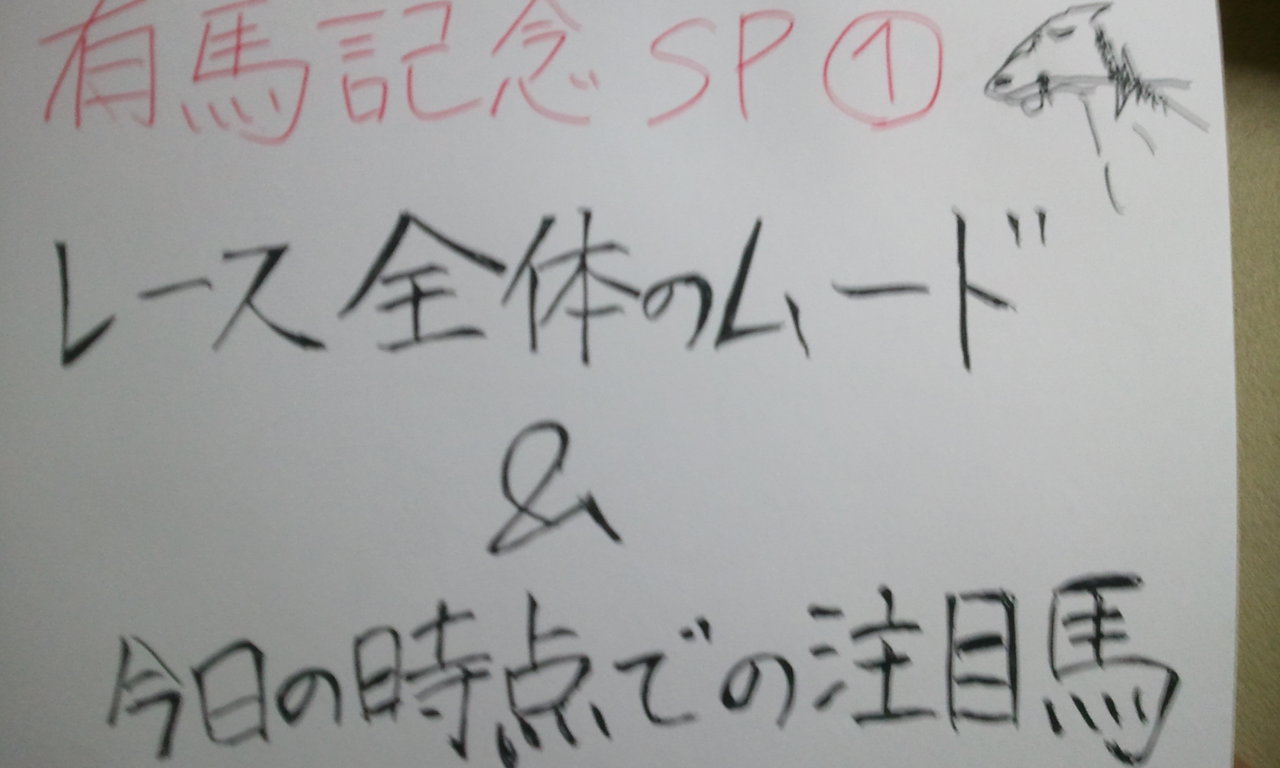 有馬記念SP①
レース全体のムード
&
今日の時点での注目馬